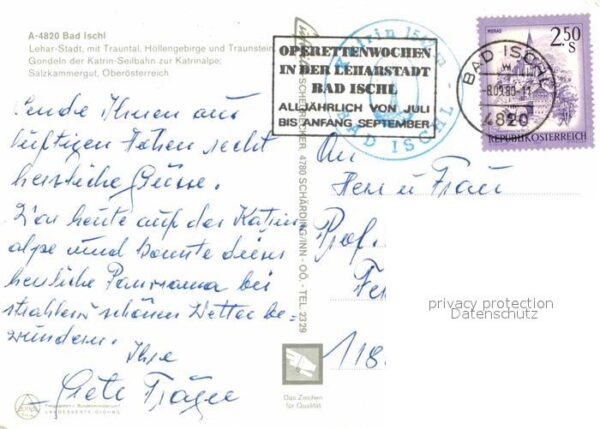 A-4820 Bad Ischl
Lehar-Stadt, mit Trauntal, Höllengebirge und Traunstein
Gondeln der Katrin-Seilbahn zur Katrinalpe;
Salzkammergut, Oberösterreich
OPERETTENWOCHEN
IN DER LEHARSTADT
BAD ISCHL
ALLJÄHRLICH VON JULI
BIS ANFANG SEPTEMBER
Katrin 1542
BAD ISCHL
BAD ISCHL
4820
MURAU
2.50
S
REPUBLIK ÖSTERREICH
Sende Ihnen aus
luftigen Höhen recht
herzliche Grüsse.
War heute auf der Katrin
alpe und konnte dieses
herrliche Panorama bei
strahlend schönem Wetter be-
wundern.
Ihre
Grete
4780 SCHÄRDING/INN - OÖ. - TEL. 2329
An
Herr u Frau
Prof.
118
privacy protection
Datenschutz
Das Zeichen
für Qualität